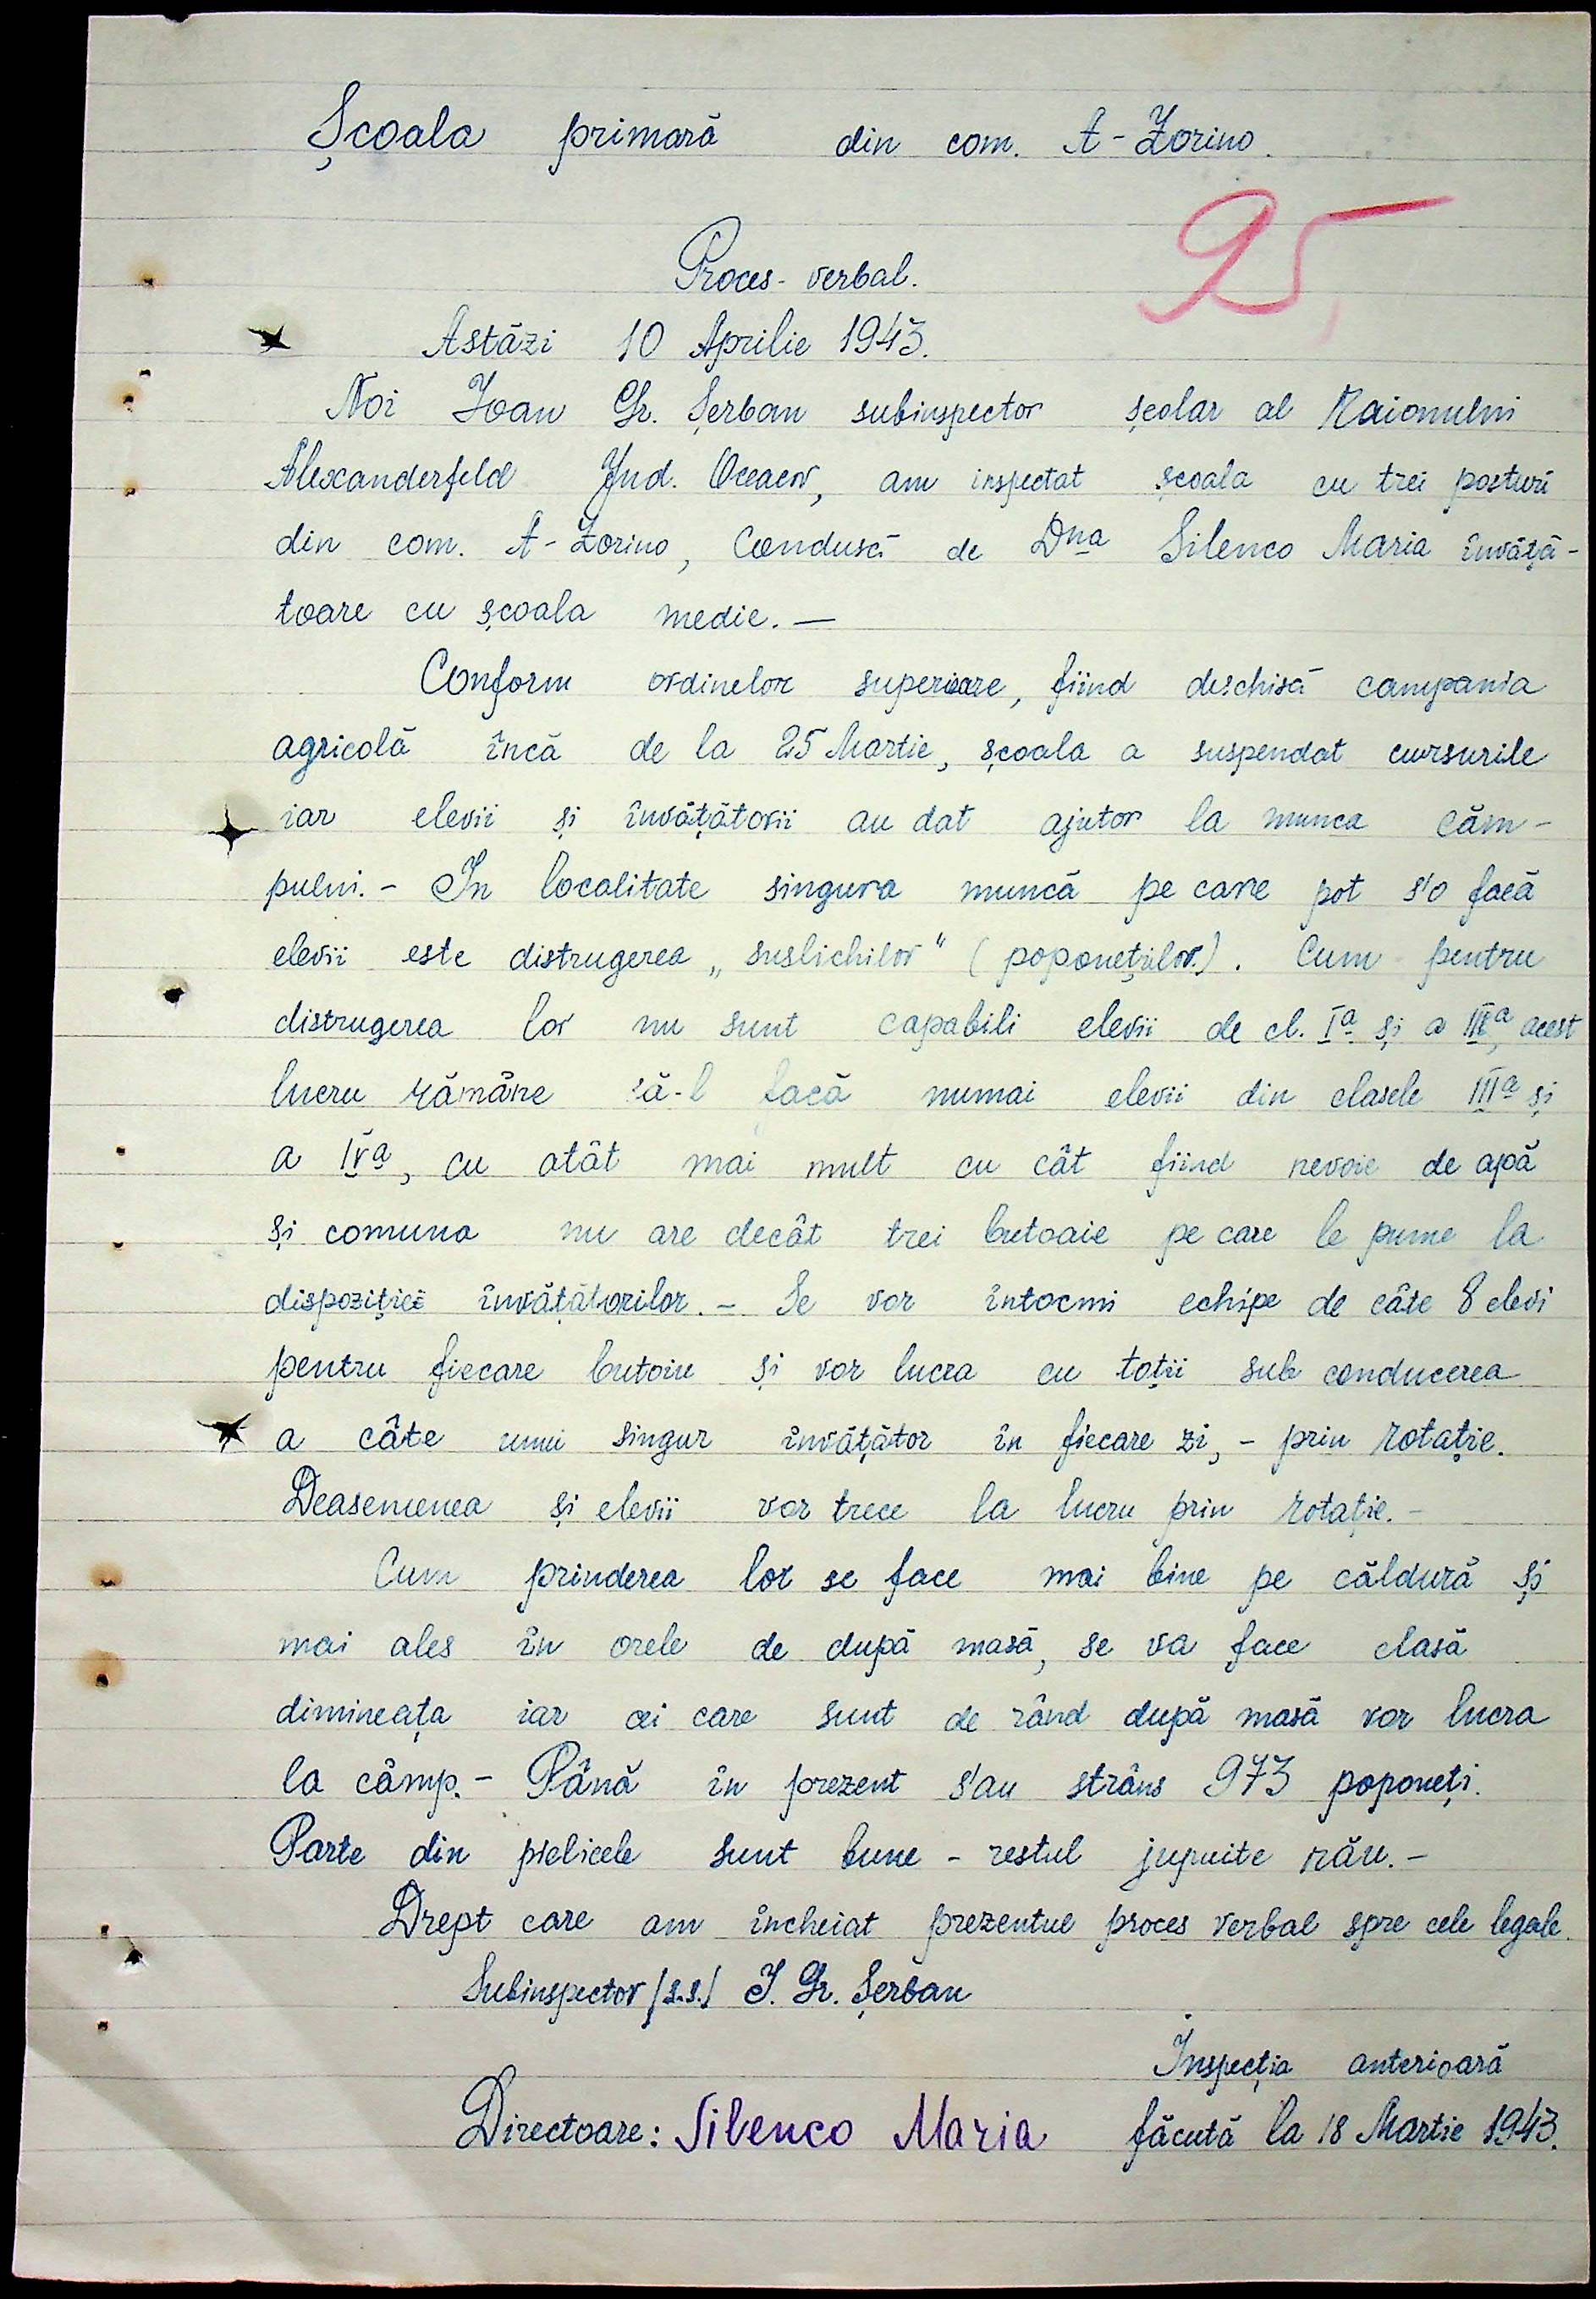 Școala primară din com. A-Zorino.
95
Proces-verbal.
Astăzi 10 Aprilie 1943.
Noi Ioan Gr. Șerban subinspector școlar al Raionului
Alexanderfeld Jud. Oceacov, am inspectat școala cu trei posturi
din com. A-Zorino, Condusă de Dna Silenco Maria învăță-
toare cu școala medie. —
Conform ordinelor superioare, fiind deschisă campania
agricolă încă de la 25 Martie, școala a suspendat cursurile
iar elevii și învățătorii au dat ajutor la munca câm-
pului. - In localitate singura muncă pe care pot s'o facă
elevii este distrugerea „suslichilor" (poponeților). Cum pentru
distrugerea lor nu sunt capabili elevii de cl. Ia și a IIa, acest
lucru rămâne să-l facă numai elevii din clasele IIIa și
a IVa, cu atât mai mult cu cât fiind nevoie de apă
și comuna nu are decât trei butoaie pe care le pune la
dispoziției învățătorilor. - Se vor întocmi echipe de câte 8 elevi
pentru fiecare butoiu și vor lucra cu toții sub conducerea
a câte unui singur învățător în fiecare zi, - prin rotație.
Deasemenea și elevii vor trece la lucru prin rotație. -
Cum prinderea lor se face mai bine pe căldură și
mai ales în orele de după masă, se va face clasă
dimineața iar cei care sunt de rând după masă vor lucra
la câmp. - Până în prezent s'au strâns 973 poponeți.
Parte din pielicele sunt bune - restul jupuite rău. -
Drept care am încheiat prezentul proces verbal spre cele legale.
Subinspector /s.s./ I. Gr. Șerban
Inspecția anterioară
Directoare: Silenco Maria făcută la 18 Martie 1943.